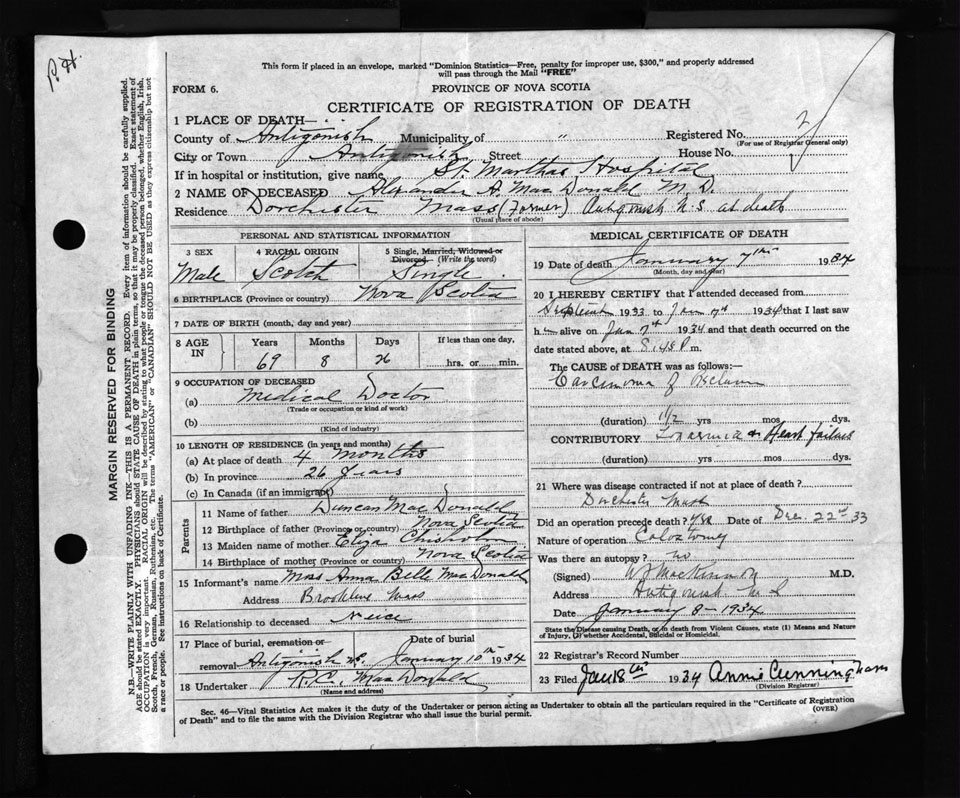 P.H.
This form if placed in an envelope, marked "Dominion Statistics—Free, penalty for improper use, $300," and properly addressed
will pass through the Mail "FREE"
FORM 6.
PROVINCE OF NOVA SCOTIA
CERTIFICATE OF REGISTRATION OF DEATH
1 PLACE OF DEATH—
County of Antigonish Municipality of " Registered No. 2
(For use of Registrar General only)
City or Town Antigonish Street House No.
If in hospital or institution, give name St. Marthas Hospital
2 NAME OF DECEASED Alexander A. MacDonald M.D.
Residence Dorchester Mass (Former) Antigonish N.S at death
(Usual place of abode)
PERSONAL AND STATISTICAL INFORMATION
3 SEX Male
4 RACIAL ORIGIN Scotch
5 Single, Married, Widowed or Divorced (Write the word) Single
6 BIRTHPLACE (Province or country) Nova Scotia
7 DATE OF BIRTH (month, day and year)
8 AGE IN
Years Months Days If less than one day,
69 8 26 hrs. or min.
9 OCCUPATION OF DECEASED
(a) Medical Doctor
(Trade or occupation or kind of work)
(b)
(Kind of industry)
10 LENGTH OF RESIDENCE (in years and months)
(a) At place of death 4 months
(b) In province 26 years
(c) In Canada (if an immigrant)
Parents
11 Name of father Duncan MacDonald
12 Birthplace of father (Province or country) Nova Scotia
13 Maiden name of mother Eliza Chisholm
14 Birthplace of mother (Province or country) Nova Scotia
15 Informant's name Miss Anna Belle MacDonald
Address Brookline Mass
16 Relationship to deceased neice
17 Place of burial, cremation or removal Antigonish N.S. Date of burial January 10th 1934
18 Undertaker R.C. MacDonald
(Name and address)
MEDICAL CERTIFICATE OF DEATH
19 Date of death January 7th 1934
(Month, day and year)
20 I HEREBY CERTIFY that I attended deceased from
September 1933 to Jan 7th 1934 that I last saw
him alive on Jan 7th 1934 and that death occurred on the
date stated above, at 8:45 P m.
The CAUSE of DEATH was as follows:
Carcinoma of Rectum
(duration) 1 1/2 yrs mos. dys.
CONTRIBUTORY & Heart failure
(duration) yrs mos. dys.
21 Where was disease contracted if not at place of death?
Dorchester Mass
Did an operation precede death? yes Date of Dec. 22nd 33
Nature of operation Colostomy
Was there an autopsy? no
(Signed) W J MacKinnon M.D.
Address Antigonish N S
Date January 8 - 1934
State the Disease causing Death, or, in death from Violent Causes, state (1) Means and Nature
of Injury, (2) whether Accidental, Suicidal or Homicidal.
22 Registrar's Record Number
23 Filed Jan 18th 1934 Annie Cunningham
(Division Registrar)
Sec. 46—Vital Statistics Act makes it the duty of the Undertaker or person acting as Undertaker to obtain all the particulars required in the "Certificate of Registration
of Death" and to file the same with the Division Registrar who shall issue the burial permit.
(OVER)
MARGIN RESERVED FOR BINDING
N.B.—WRITE PLAINLY WITH UNFADING INK—THIS IS A PERMANENT RECORD. Every item of information should be carefully supplied.
AGE should be stated EXACTLY. PHYSICIANS should STATE CAUSE OF DEATH in plain terms, so that it may be properly classified. Exact statement of
OCCUPATION is very important. RACIAL ORIGIN will be described by stating to what people or tongue the deceased person belonged, whether English, Irish,
Scotch, French, German, Russian, Ruthenian, etc. The terms "AMERICAN" or "CANADIAN" SHOULD NOT BE USED as they express citizenship but not
a race or people. See instructions on back of Certificate.